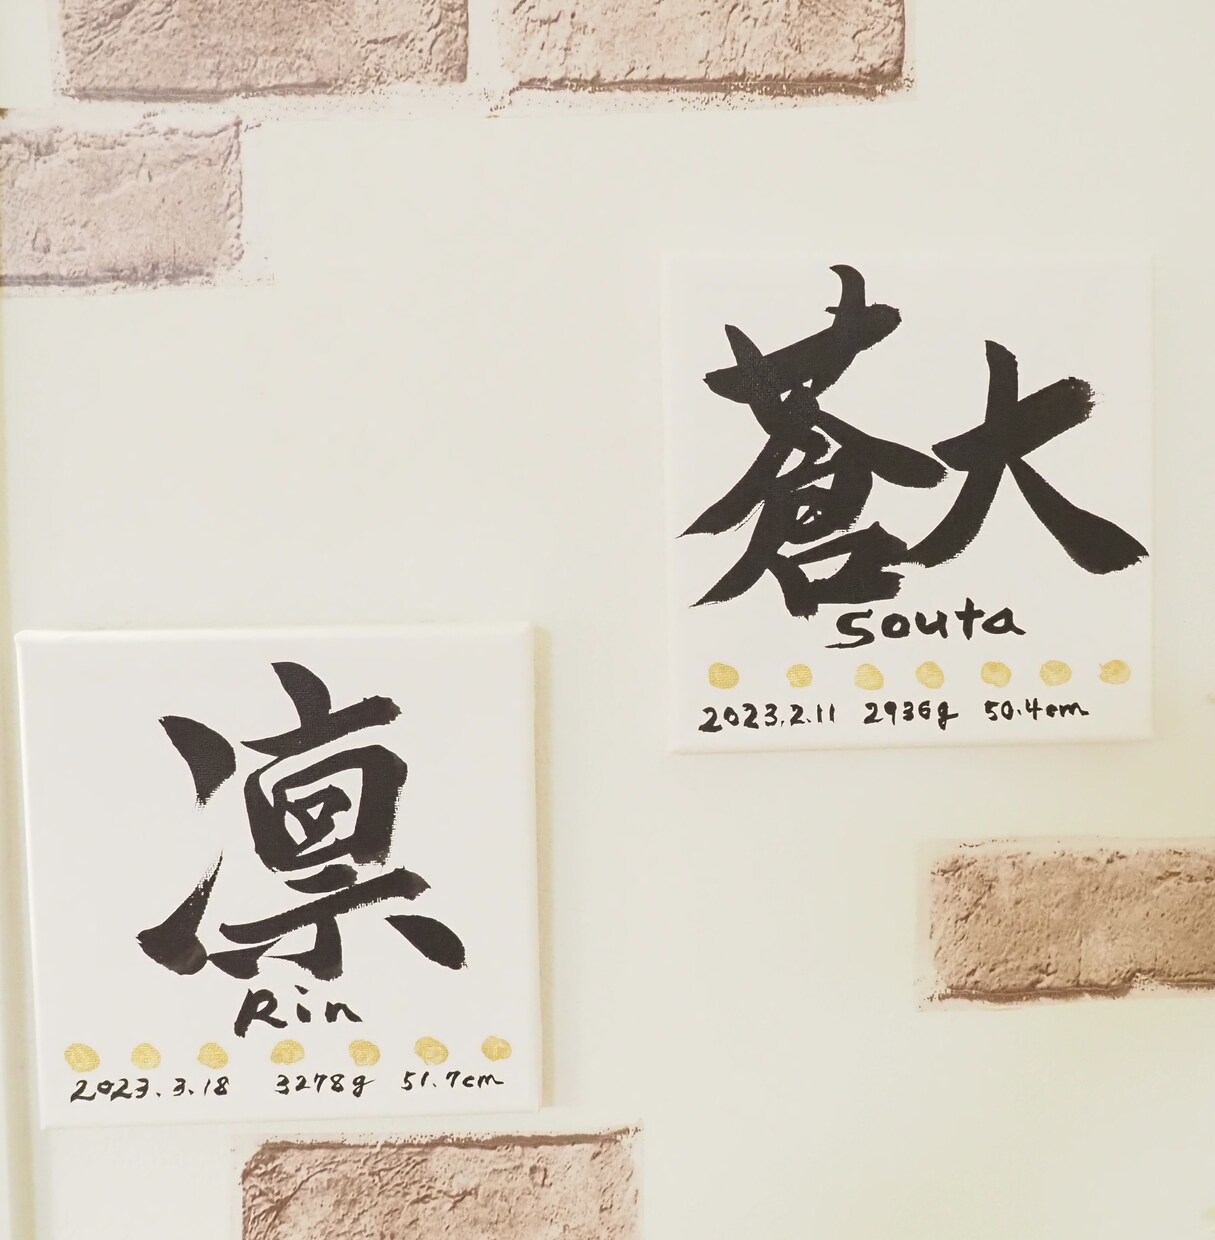 蒼大
Souta
2023.2.11 2936g 50.4cm
凛
Rin
2023.3.18 3278g 51.7cm